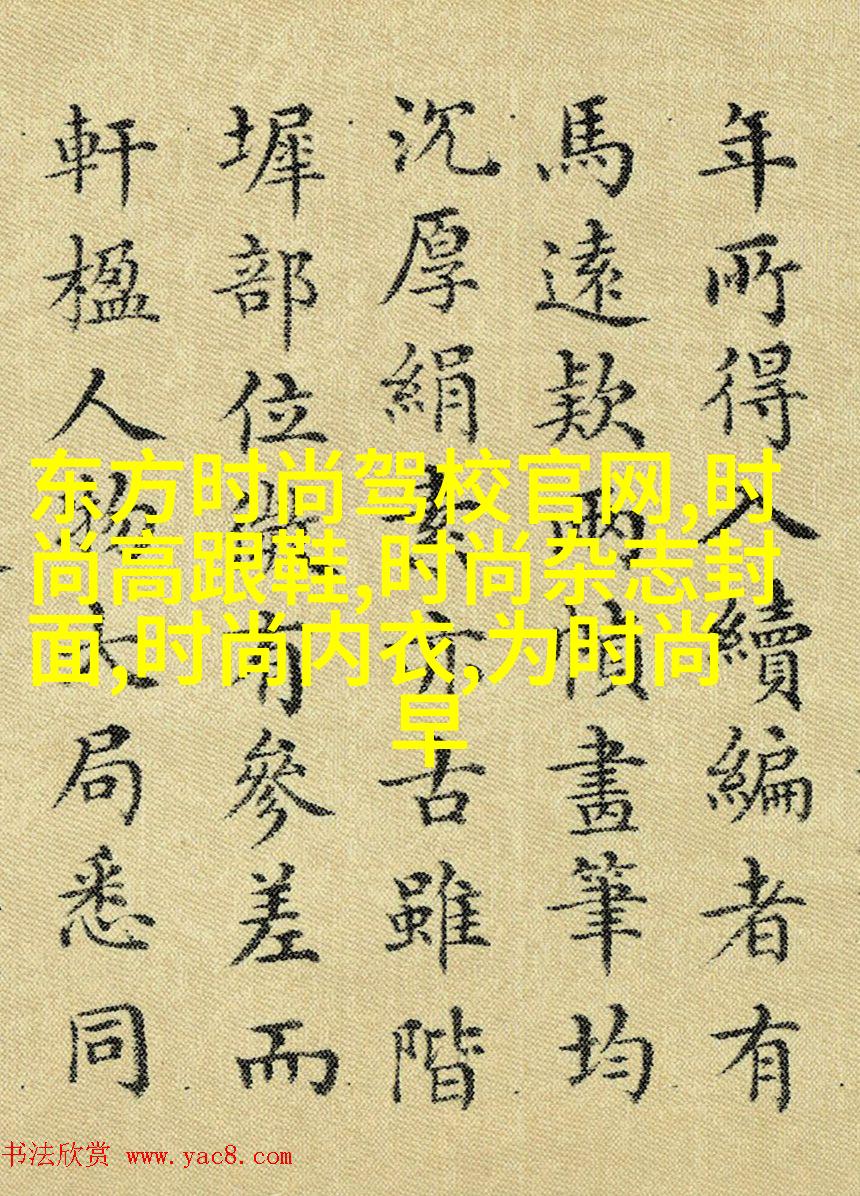 年所得入續編者有
馬遠款兩幀畫筆均
沉厚絹素亦古雖階
墀部位有參差而
軒楹人物大局悉同
东方时尚驾校官网,时
尚高跟鞋,时尚杂志封
面,时尚内衣,为时尚
早
书法欣赏 www.yac8.com